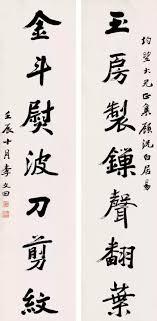 玉房製鏁聲翻葉
均堅大兄正集顧況白居易
金斗熨波刀剪紋
壬辰十月李文田